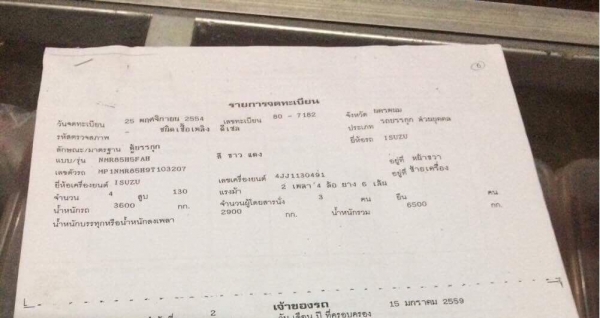 6
รายการจดทะเบียน
วันจดทะเบียน 25 พฤศจิกายน 2554 เลขทะเบียน 80 - 7182 จังหวัด นครพนม
รหัสตรวจสภาพ - ชนิดเชื้อเพลิง ดีเซล ประเภท รถบรรทุก ส่วนบุคคล
ลักษณะ/มาตรฐาน ตู้บรรทุก ยี่ห้อรถ ISUZU
แบบ/รุ่น NMR85H5FAH สี ขาว แดง
เลขตัวรถ MP1NMR85H9T103207 อยู่ที่ หน้าขวา
ยี่ห้อเครื่องยนต์ ISUZU เลขเครื่องยนต์ 4JJ1130491 อยู่ที่ ซ้ายเครื่อง
จำนวน 4 สูบ 130 แรงม้า 2 เพลา 4 ล้อ ยาง 6 เส้น
น้ำหนักรถ 3600 กก. จำนวนผู้โดยสารนั่ง 3 คน ยืน คน
น้ำหนักบรรทุกหรือน้ำหนักลงเพลา 2900 กก. น้ำหนักรวม 6500 กก.
เจ้าของรถ
2 วัน เดือน ปี ที่ครอบครอง 15 มกราคม 2559